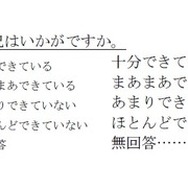 はいかがですか。
できている
まあできている
りできていない
んどできていない
答
十分できて
まあまあで
あまりでき
ほとんどで
無回答……